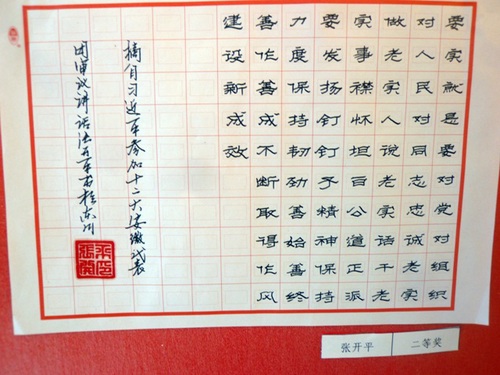 要实就是要对党对组织
对人民对同志忠诚老实
做老实人说老实话干老
实事襟怀坦白公道正派
要发扬钉钉子精神保持
力度保持韧劲善始善终
善作善成不断取得作风
建设新成效
摘自习近平参加十二大安徽代表
团审议讲话 开平
张开平 二等奖